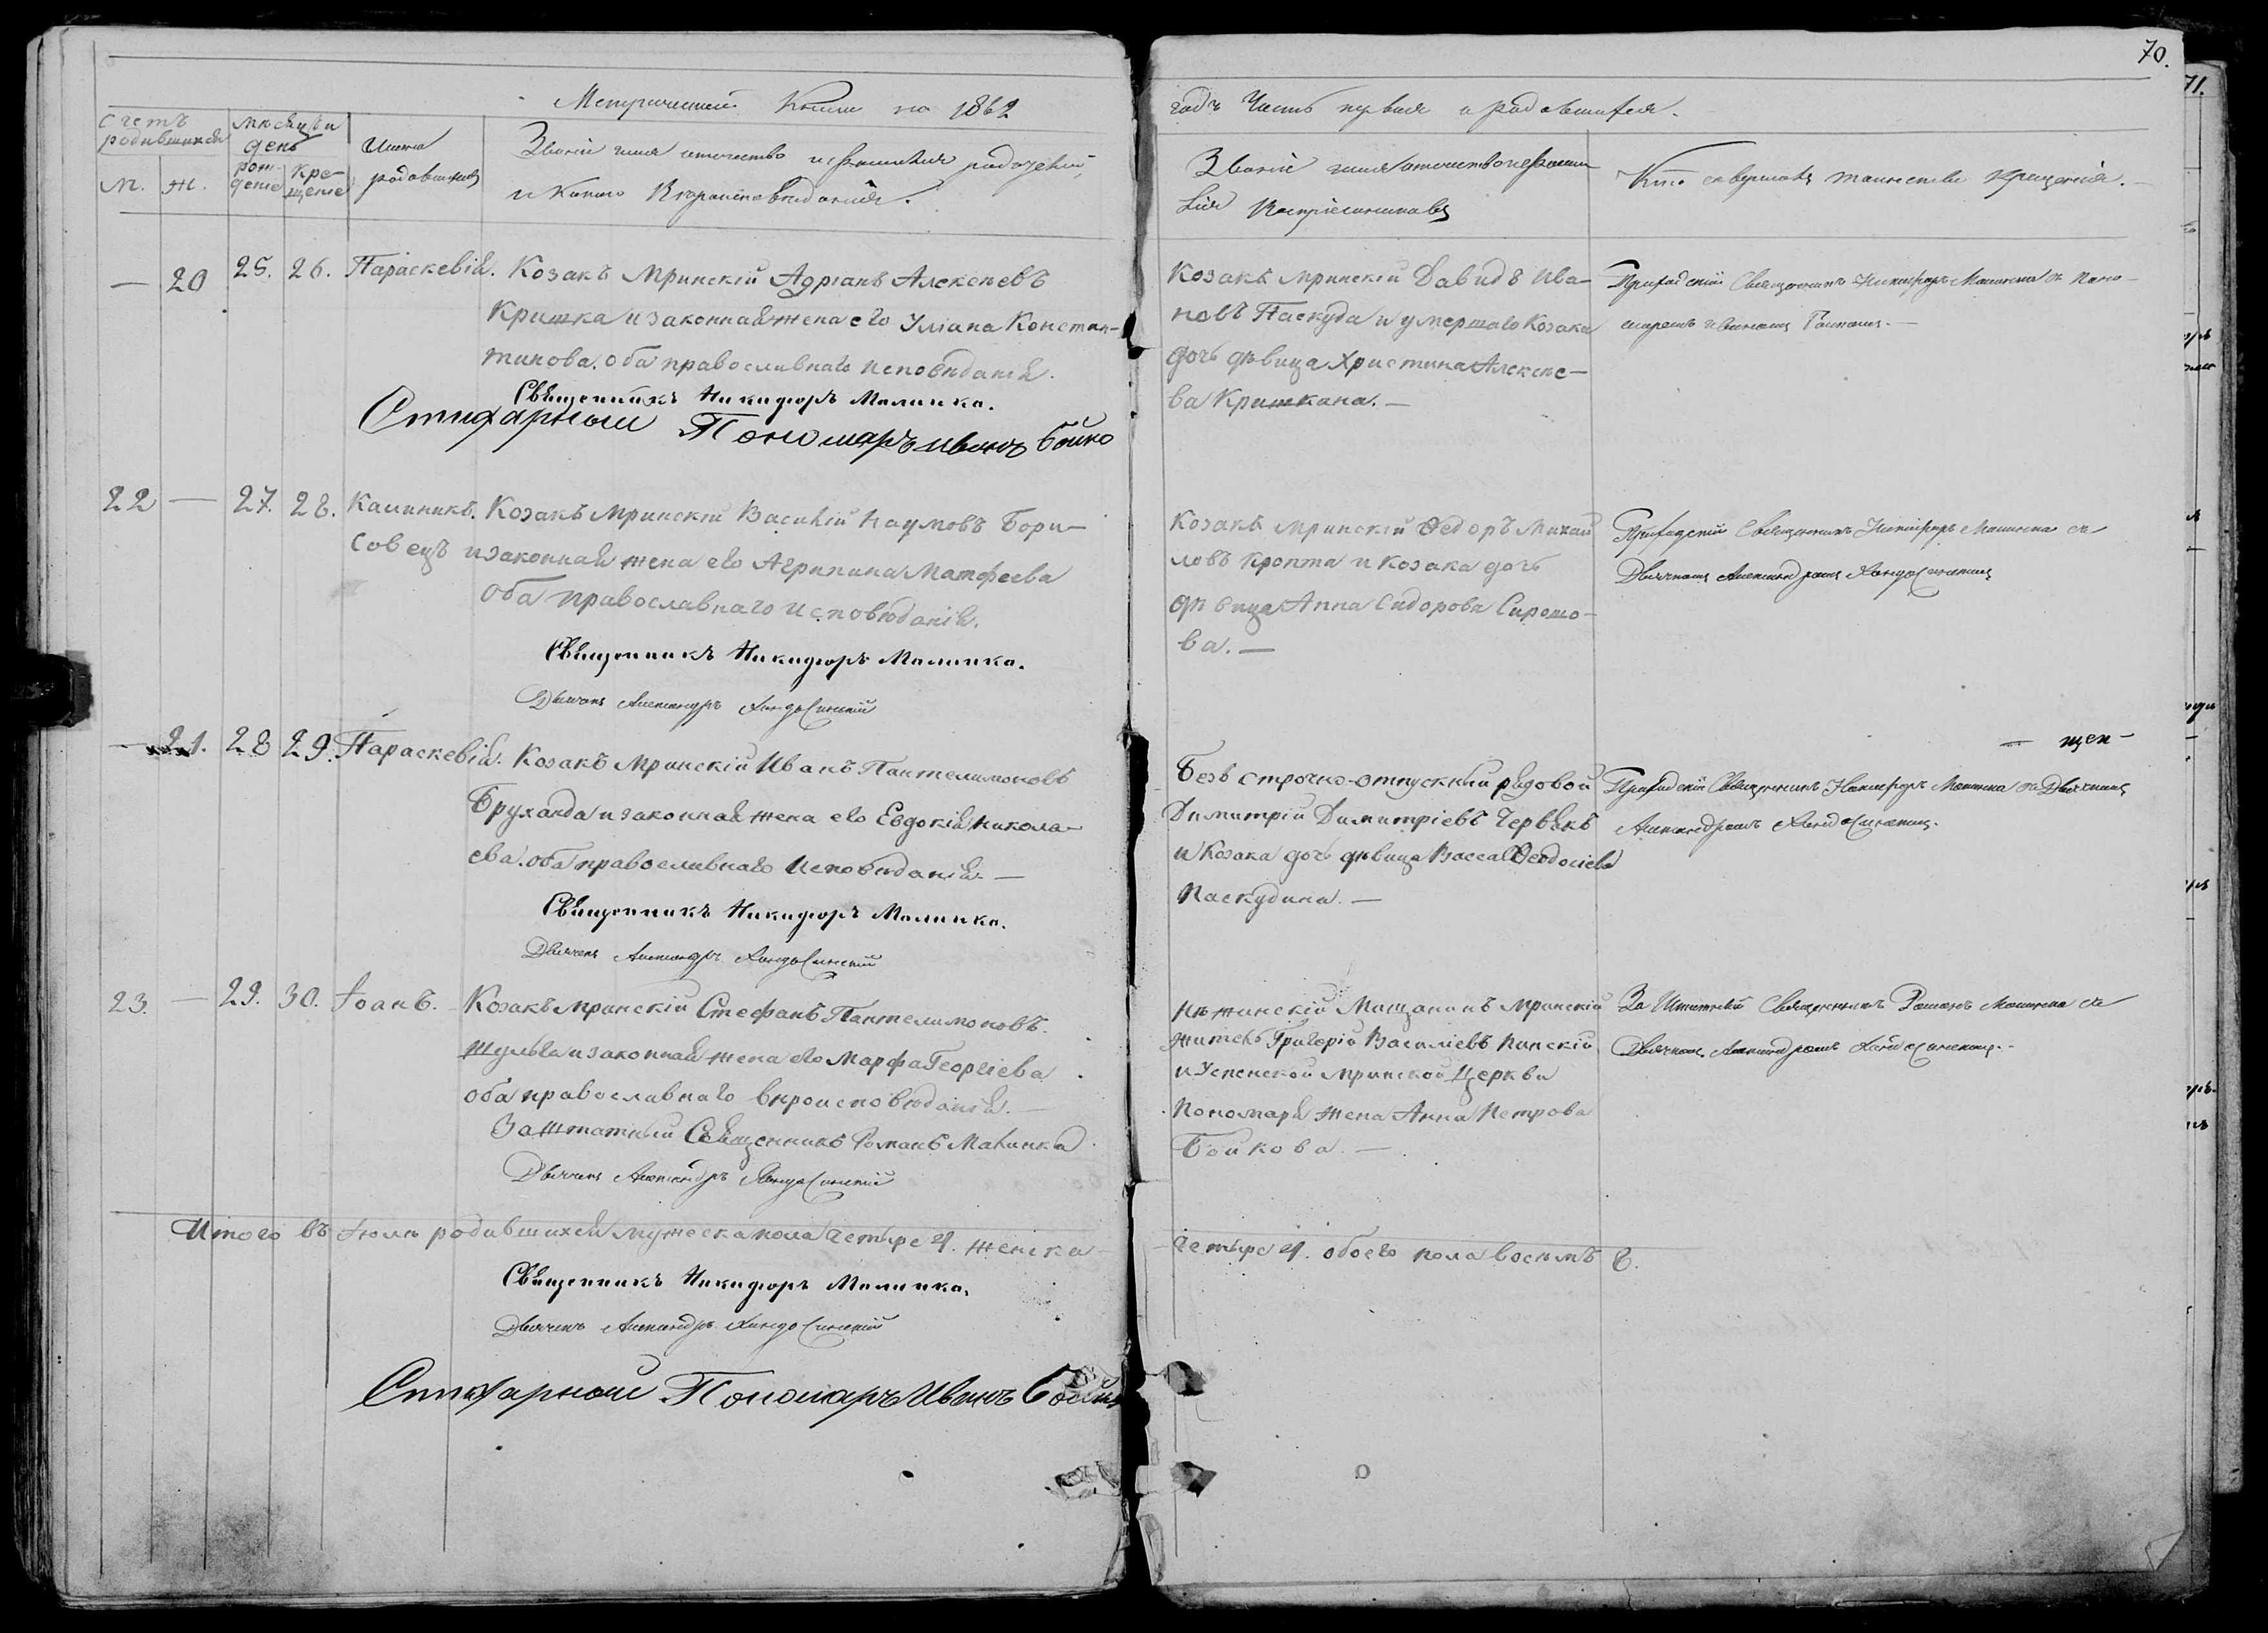 70.
71.
Метрической Книги на 1862
годъ Часть первая о родившихся.
Счетъ родившихся
М.
Ж.
Мѣсяцъ и день
рож-
деніе
Кре-
щеніе
Имена
родившихся
Званіе имя отчество и фамилія родителей,
и какого Вѣроисповѣданія.
Званіе имя отчество и фами-
лія Воспріемниковъ
Кто совершалъ таинство крещенія.
— 20 25. 26. Параскевія.
Козакъ Мринскій Адріанъ Алексѣевъ
Кришка и законная жена его Уліана Констан-
тинова. оба православнаго исповѣданія.
Священникъ Никифоръ Малинка.
Стихарный Пономарь Иванъ Бойко
Козакъ Мринскій Давидъ Ива-
новъ Паскуда и умершаго Козака
дочь дѣвица Христина Алексѣе-
ва Кришкана. —
Приходскій Священникъ Никифоръ Малинка съ Поно-
маремъ Иваномъ
22 — 27. 28. Калиникъ.
Козакъ Мринскій Василій Наумовъ Бори-
совецъ и законная жена его Агрипина Матфеева
Оба православнаго исповѣданія.
Священникъ Никифоръ Малинка.
Дьячокъ Александръ
Козакъ Мринскій Ѳедоръ Михай
ловъ Кропта и Козака дочь
дѣвица Анна Сидорова Сирошо-
ва. —
Приходскій Священникъ Никифоръ Малинка съ
Дьячкомъ Александромъ
— 21. 28 29. Параскевія.
Козакъ Мринскій Иванъ Пантелимоновъ
Бруханда и законная жена его Евдокія Никола-
ева. оба православнаго исповѣданія. —
Священникъ Никифоръ Малинка.
Дьячокъ Александръ
Безъ строчно-отпускный рядовой
Димитрій Димитріевъ Червякъ
и Козака дочь дѣвица Васса Ѳеодосіева
Паскудина. —
— щен —
Приходскій Священникъ Никифоръ Малинка съ Дьячкомъ
Александромъ
23. — 29. 30. Іоанъ.
Козакъ Мринскій Стефанъ Пантелимоновъ
Жульба и законная жена его Марфа Георгіева
оба православнаго вѣроисповѣданія. —
Заштатный Священникъ Романъ Малинка
Дьячокъ Александръ
Нѣжинскій Мѣщанинъ Мринскій
житель Григорій Василіевъ Пинскій
и Успенской Мринской Церкви
Пономаря жена Анна Петрова
Бойкова. —
Заштатный Священникъ Романъ Малинка съ
Дьячкомъ Александромъ
Итого въ Іюлѣ родившихся мужеска пола четыре 4. женска
четыре 4. обоего пола восемь 8.
Священникъ Никифоръ Малинка.
Дьячокъ Александръ
Стихарный Пономарь Иванъ Бойко